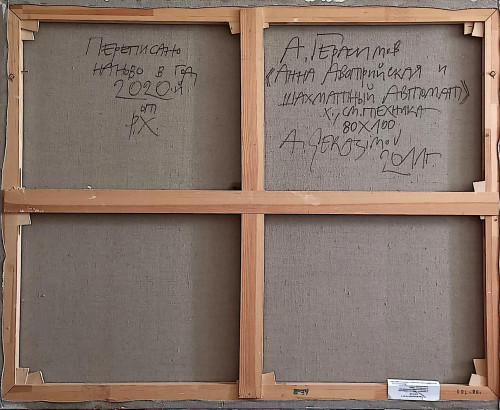 Переписано
наново в год
2020-й
от
РХ.
А. Герасимов
«Анна Австрийская и
шахматный автомат»
х., см. техника
80х100
A. Gerasimov
2011г